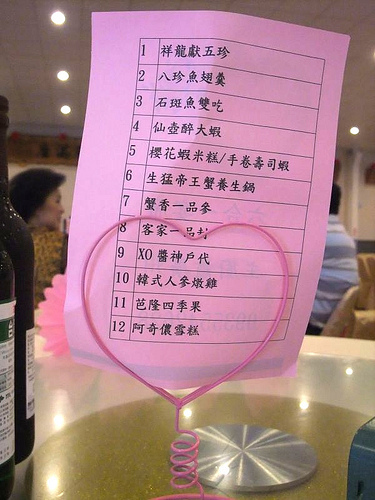 1 祥龍獻五珍
2 八珍魚翅羹
3 石斑魚雙吃
4 仙壺醉大蝦
5 櫻花蝦米糕/手卷壽司蝦
6 生猛帝王蟹養生鍋
7 蟹香一品參
8 客家一品封
9 XO醬神戶代
10 韓式人參燉雞
11 芭隆四季果
12 阿奇儂雪糕